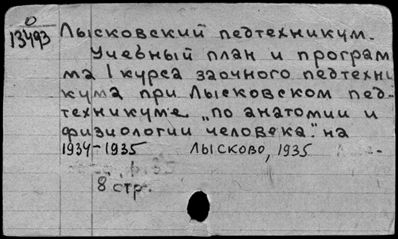 О
13493
Лысковский педтехникум.
Учебный план и програм
ма 1 курса заочного педтехни
кума при Лысковском пед-
техникуме „по анатомии и
физиологии человека." на
1934-1935 Лысково, 1935
8 стр.